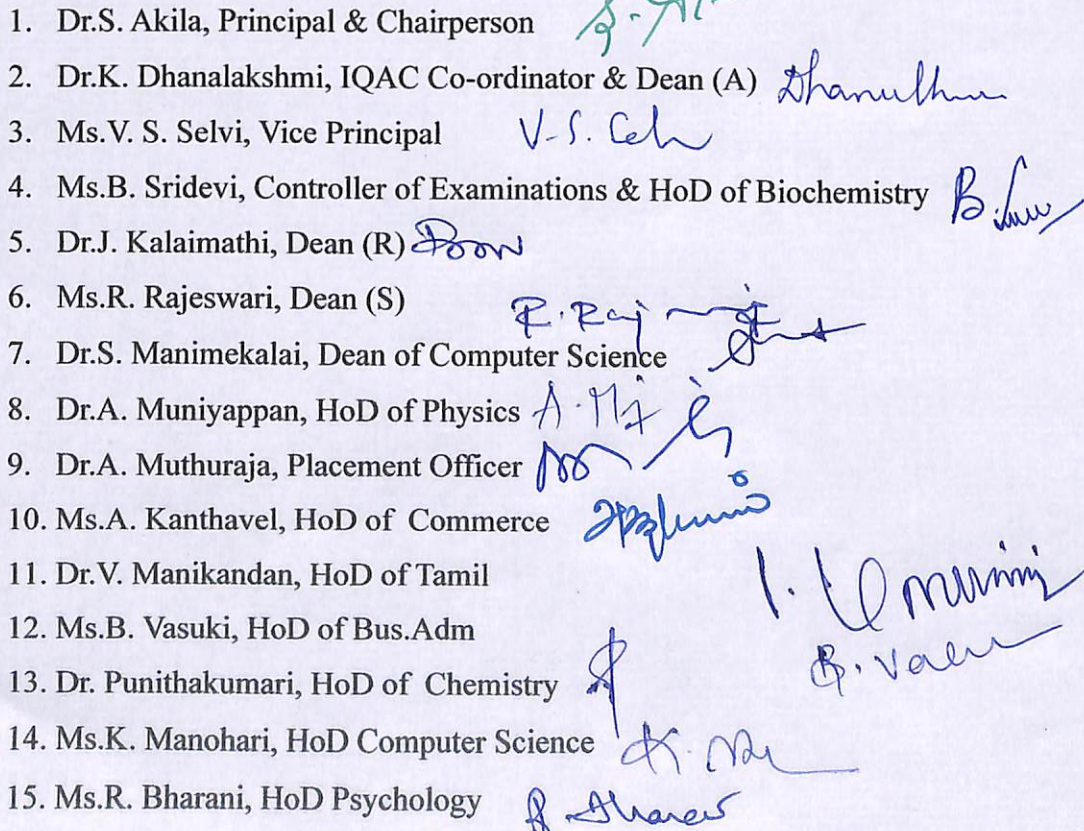 1. Dr.S. Akila, Principal & Chairperson
2. Dr.K. Dhanalakshmi, IQAC Co-ordinator & Dean (A)
3. Ms.V. S. Selvi, Vice Principal V.S. Selv
4. Ms.B. Sridevi, Controller of Examinations & HoD of Biochemistry
5. Dr.J. Kalaimathi, Dean (R)
6. Ms.R. Rajeswari, Dean (S) R. Raj
7. Dr.S. Manimekalai, Dean of Computer Science
8. Dr.A. Muniyappan, HoD of Physics
9. Dr.A. Muthuraja, Placement Officer
10. Ms.A. Kanthavel, HoD of Commerce
11. Dr.V. Manikandan, HoD of Tamil
12. Ms.B. Vasuki, HoD of Bus.Adm
13. Dr. Punithakumari, HoD of Chemistry
14. Ms.K. Manohari, HoD Computer Science
15. Ms.R. Bharani, HoD Psychology